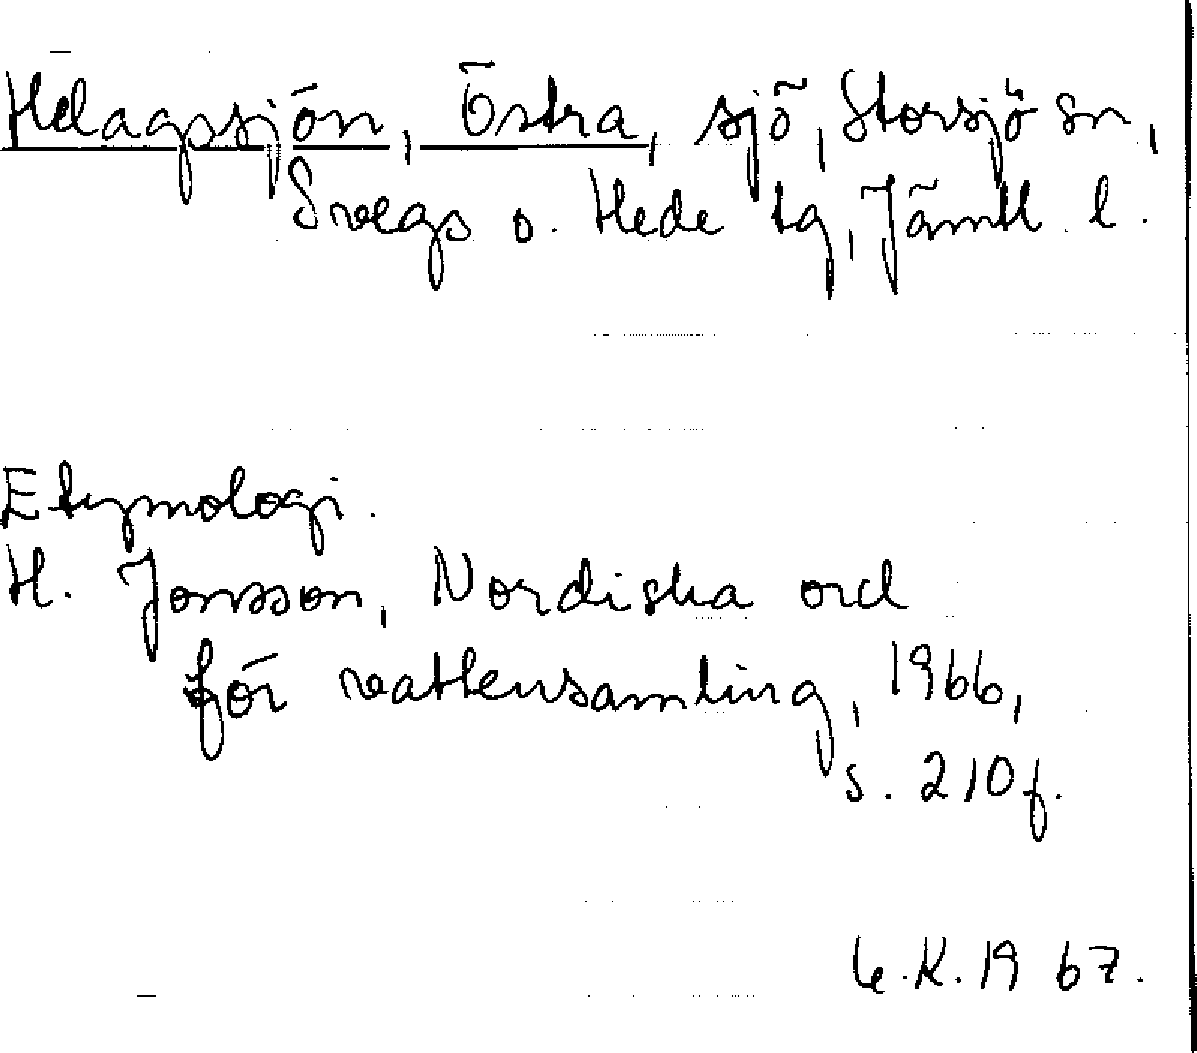 Helagssjön, Östra, sjö, Storsjö sn,
Svegs o. Hede tg, Jämtl l.
Etymologi.
H. Jonsson, Nordiska ord
för vattensamling, 1966,
s. 210f.
K. 1967.